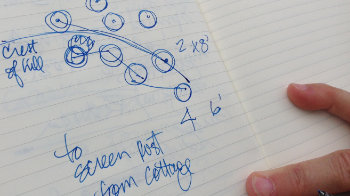 Crest
of hill
2 x 8'
4 6'
to
screen post
from cottage